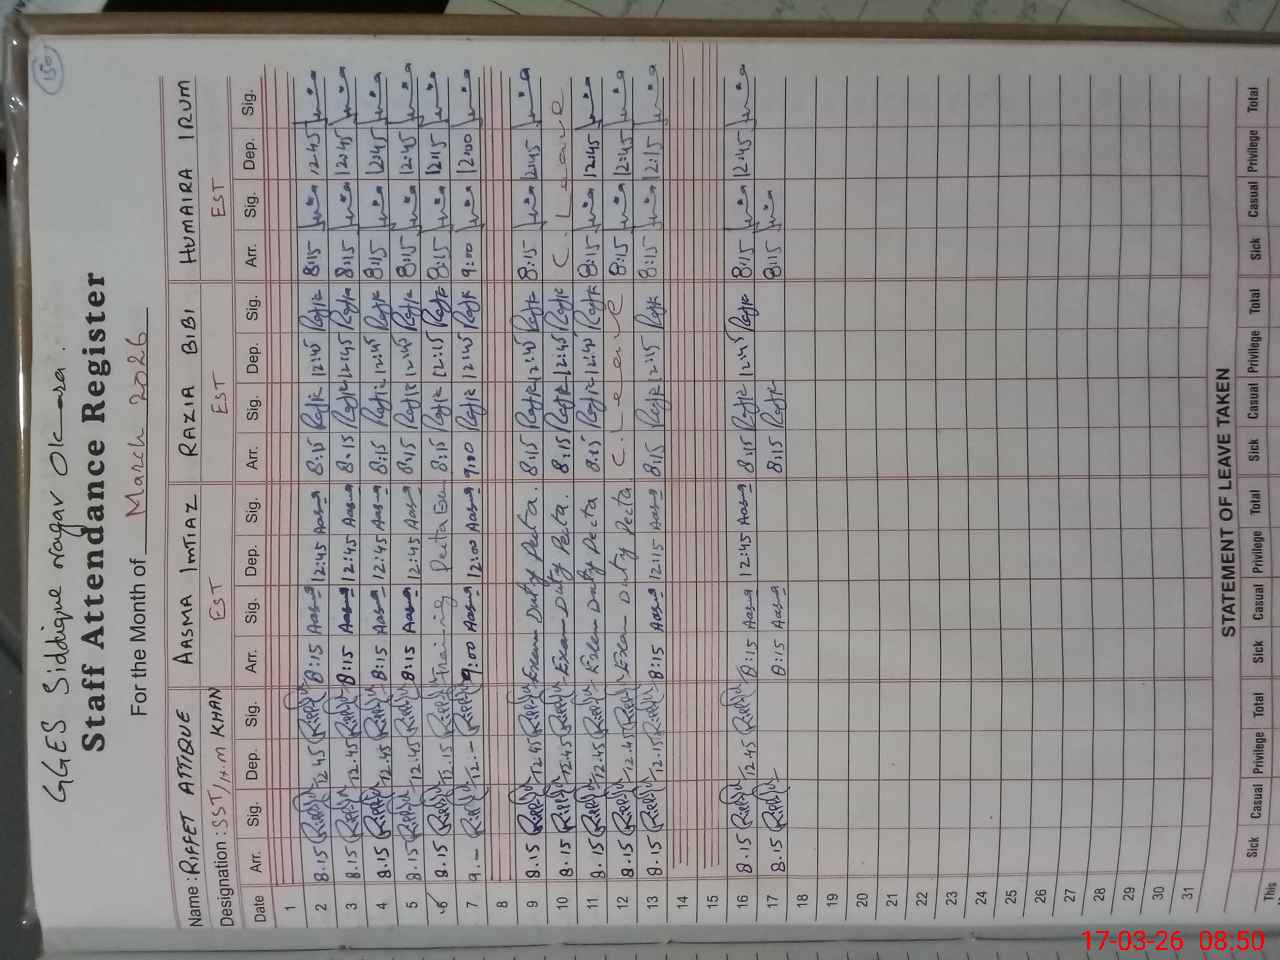 150
GGES Siddique Nagar Okara.
Staff Attendance Register
For the Month of March 2026
Name: RIFFET ATTIQUE AASMA IMTIAZ RAZIA BIBI HUMAIRA IRUM
Designation: SST/H.M KHAN EST EST EST
Date Arr. Sig. Dep. Sig. Arr. Sig. Dep. Sig. Arr. Sig. Dep. Sig. Arr. Sig. Dep. Sig.
1
2 8.15 12.45 8:15 Aasma 12:45 Aasma 8:15 12:45 8:15 12:45
3 8.15 12.45 8:15 Aasma 12:45 Aasma 8.15 12:45 8:15 12:45
4 8.15 12.45 8:15 Aasma 12:45 Aasma 8:15 12:45 8:15 12:45
5 8.15 12.45 8:15 Aasma 12:45 Aasma 8:15 12:45 8:15 12:45
6 8.15 12.15 Training Pecta 8:15 12:15 8:15 12:15
7 9.- 12.- 9:00 Aasma 12:00 Aasma 9:00 12:45 9:00 12:00
8
9 8.15 12.45 Exam Duty Pecta. 8:15 12:45 8:15 12:45
10 8.15 12.45 Exam Duty Pecta. 8:15 12:45 C. Leave
11 8.15 12.45 Exam Duty Pecta 8:15 12:45 8:15 12:45
12 8.15 12.45 Exam Duty Pecta C. Leave 8:15 12:45
13 8.15 12.15 8:15 Aasma 12:15 Aasma 8:15 12:15 8:15 12:15
14
15
16 8.15 12.45 8:15 Aasma 12:45 Aasma 8:15 12:45 8:15 12:45
17 8.15 8:15 Aasma 8:15 8:15
18
19
20
21
22
23
24
25
26
27
28
29
30
31
STATEMENT OF LEAVE TAKEN
Sick Casual Privilege Total Sick Casual Privilege Total Sick Casual Privilege Total Sick Casual Privilege Total
This
17-03-26 08:50